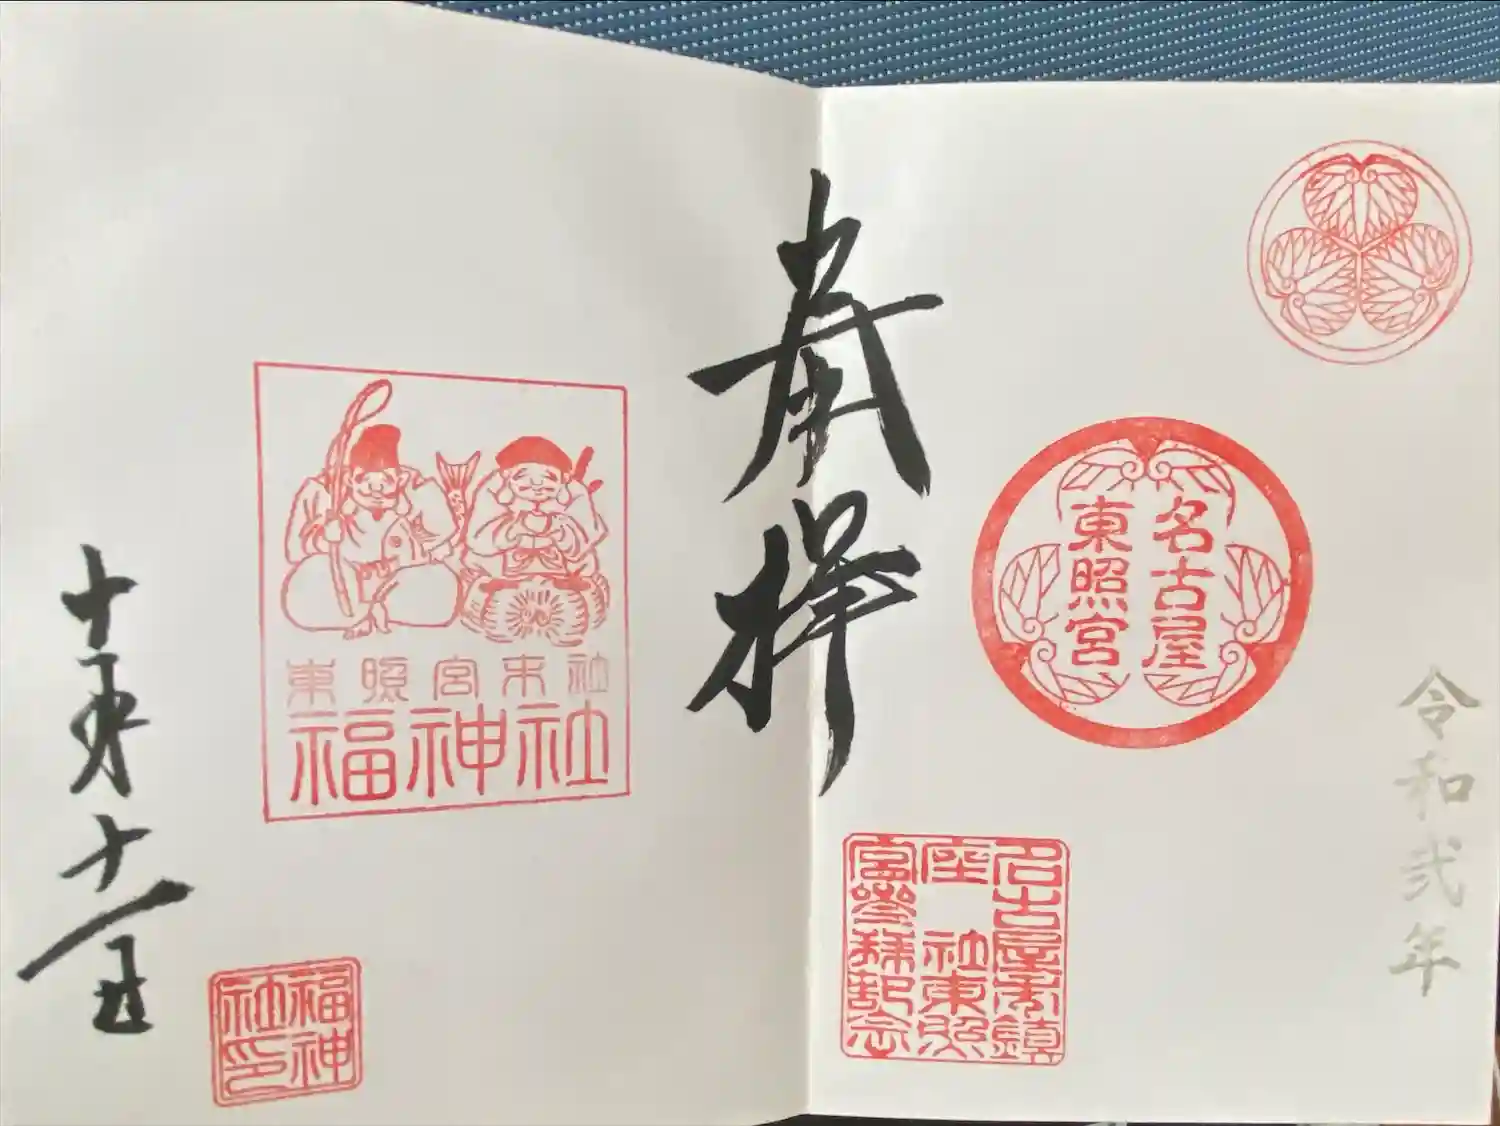 令和弐年
名古屋
東照宮
奉拝
名古屋市鎮
座 社東照
宮参拝記念
東照宮末社
福神社
福神
社印
十月十一日